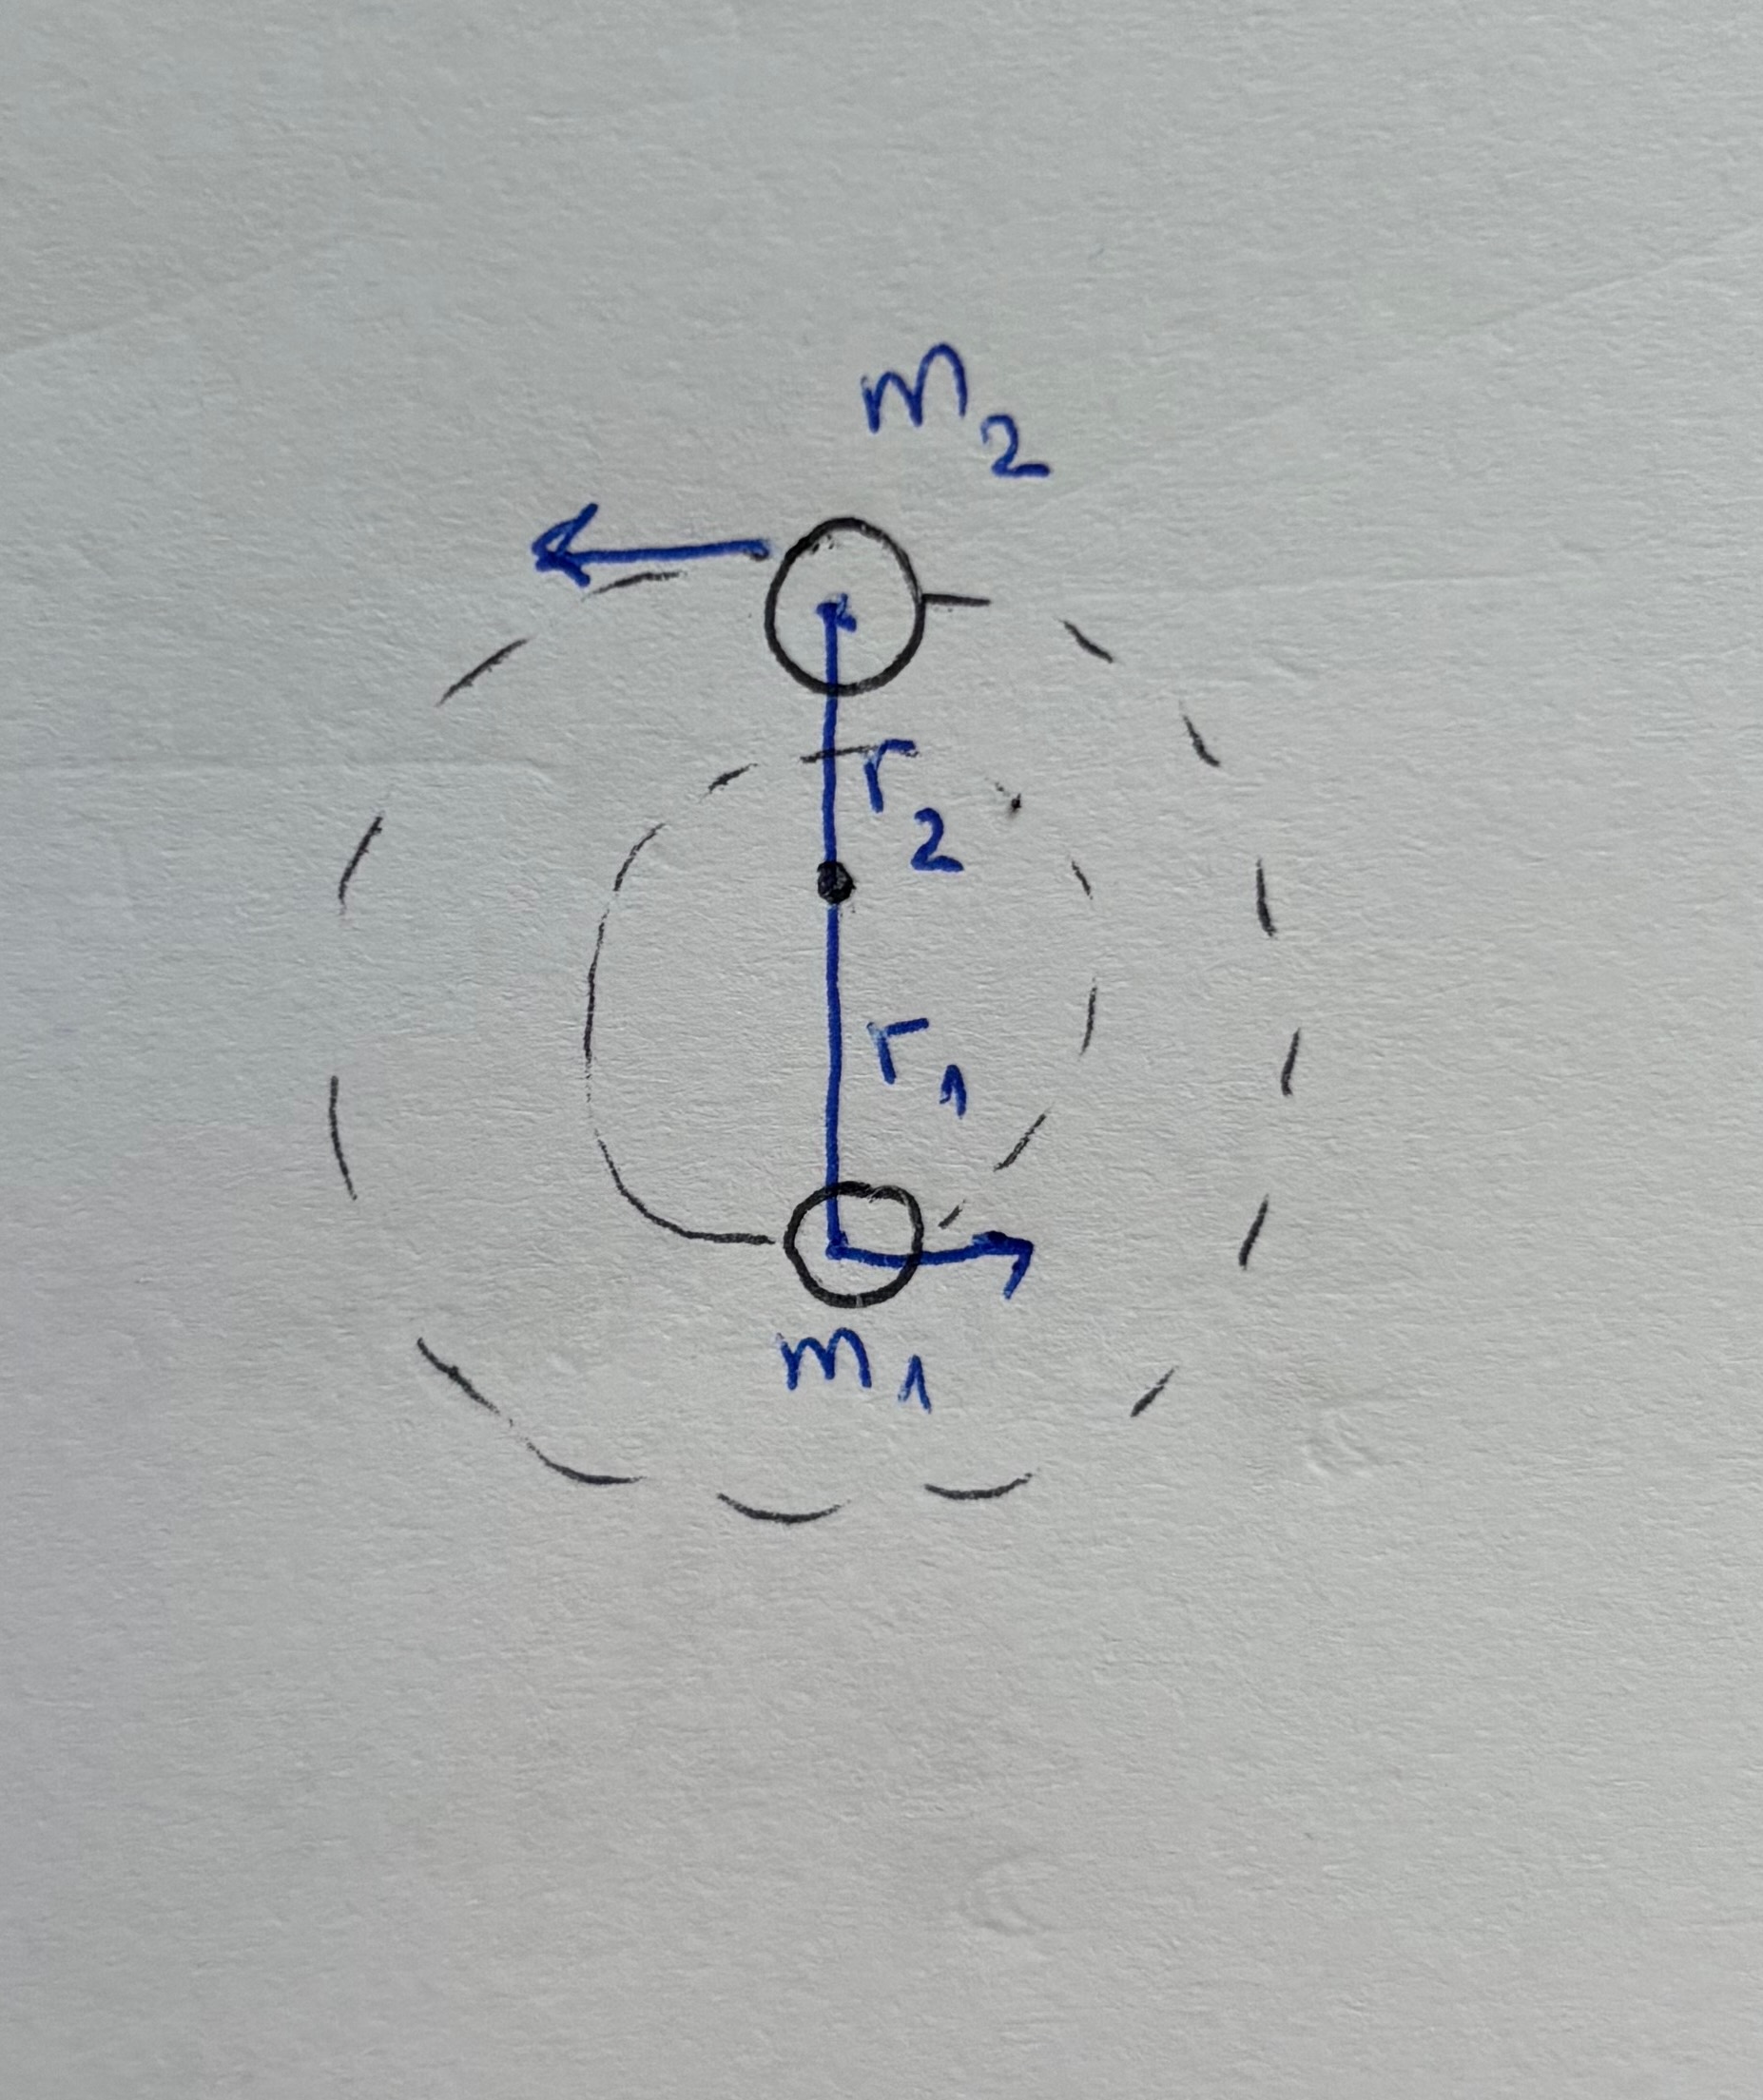 m2
r2
r1
m1